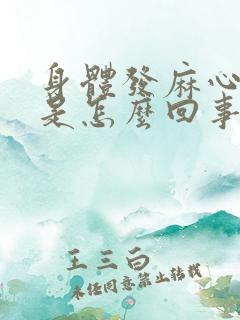 身體發麻心
是怎麼回事
王三白
未经同意禁止转载